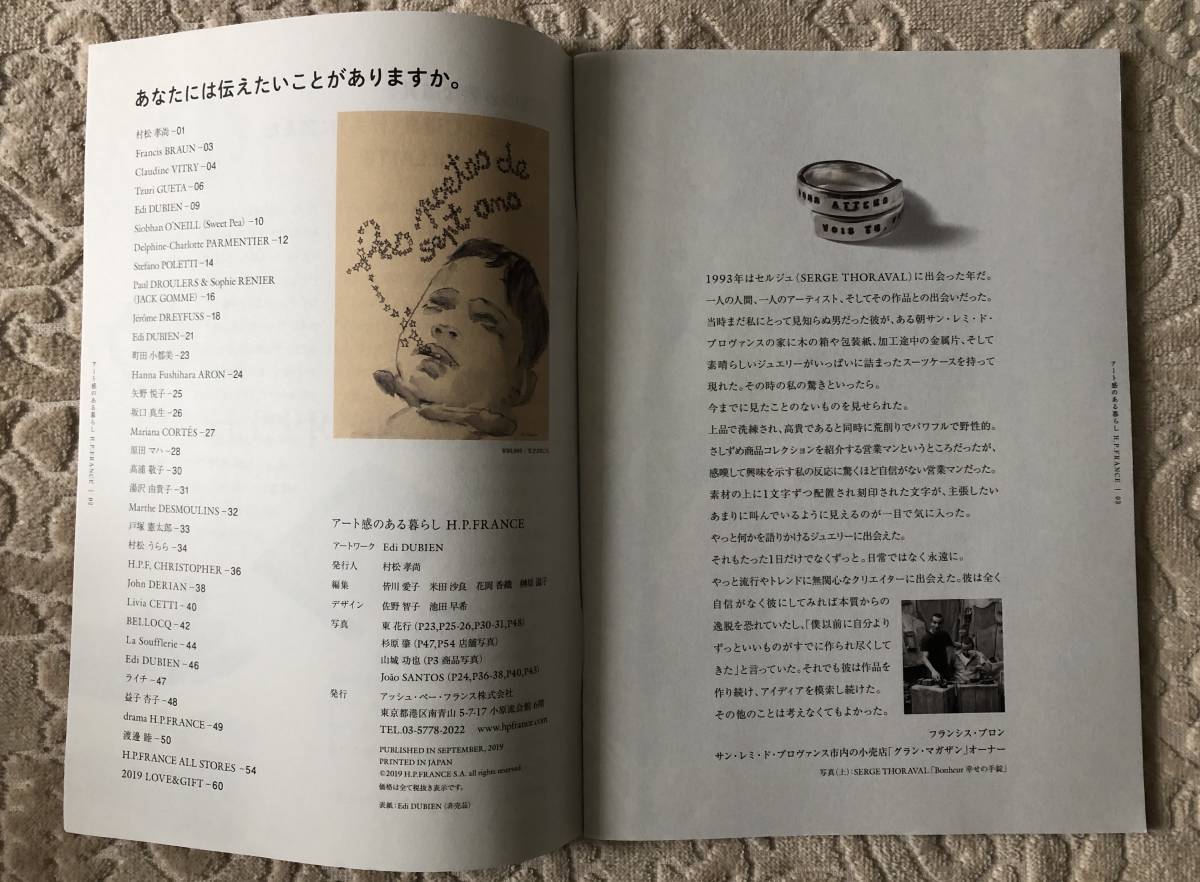 あなたには伝えたいことがありますか。
村松 孝尚 –01
Francis BRAUN –03
Claudine VITRY –04
Tzuri GUETA –06
Edi DUBIEN –09
Siobhan O'NEILL (Sweet Pea) –10
Delphine-Charlotte PARMENTIER –12
Stefano POLETTI –14
Paul DROULERS & Sophie RENIER
(JACK GOMME) –16
Jérôme DREYFUSS –18
Edi DUBIEN –21
町田 小都美 –23
Hanna Fushihara ARON –24
矢野 悦子 –25
坂口 真生 –26
Mariana CORTÉS –27
原田 マハ –28
高浦 敬子 –30
湯沢 由貴子 –31
Marthe DESMOULINS –32
戸塚 憲太郎 –33
村松 うらら –34
H.P.F, CHRISTOPHER –36
John DERIAN –38
Livia CETTI –40
BELLOCQ –42
La Soufflerie –44
Edi DUBIEN –46
ライチ –47
益子 杏子 –48
drama H.P.FRANCE –49
渡邊 睦 –50
H.P.FRANCE ALL STORES –54
2019 LOVE&GIFT –60
アート感のある暮らし H.P.FRANCE | 02
sept ans
アート感のある暮らし H.P.FRANCE
アートワーク Edi DUBIEN
発行人 村松 孝尚
編集 皆川 愛子 米田 沙良 花岡 香織 榊原 温子
デザイン 佐野 智子 池田 早希
写真 東 花行(P23,P25-26,P30-31,P48)
杉原 肇(P47,P54 店舗写真)
山城 功也(P3 商品写真)
João SANTOS(P24,P36-38,P40,P43)
発行 アッシュ・ペー・フランス株式会社
東京都港区南青山 5-7-17 小原流会館 6階
TEL.03-5778-2022 www.hpfrance.com
PUBLISHED IN SEPTEMBER, 2019
PRINTED IN JAPAN
©2019 H.P.FRANCE S.A. all rights reserved.
価格は全て税抜き表示です。
表紙：Edi DUBIEN(非売品)
1993年はセルジュ(SERGE THORAVAL)に出会った年だ。
一人の人間、一人のアーティスト、そしてその作品との出会いだった。
当時まだ私にとって見知らぬ男だった彼が、ある朝サン・レミ・ド・
プロヴァンスの家に木の箱や包装紙、加工途中の金属片、そして
素晴らしいジュエリーがいっぱいに詰まったスーツケースを持って
現れた。その時の私の驚きといったら。
今までに見たことのないものを見せられた。
上品で洗練され、高貴であると同時に荒削りでパワフルで野性的。
さしずめ商品コレクションを紹介する営業マンというところだったが、
感嘆して興味を示す私の反応に驚くほど自信がない営業マンだった。
素材の上に1文字ずつ配置され刻印された文字が、主張したい
あまりに叫んでいるように見えるのが一目で気に入った。
やっと何かを語りかけるジュエリーに出会えた。
それもたった1日だけでなくずっと。日常ではなく永遠に。
やっと流行やトレンドに無関心なクリエイターに出会えた。彼は全く
自信がなく彼にしてみれば本質からの
逸脱を恐れていたし、「僕以前に自分より
ずっといいものがすでに作られ尽くして
きた」と言っていた。それでも彼は作品を
作り続け、アイディアを模索し続けた。
その他のことは考えなくてもよかった。
フランシス・ブロン
サン・レミ・ド・プロヴァンス市内の小売店「グラン・マガザン」オーナー
写真(上)：SERGE THORAVAL「Bonheur 幸せの手錠」
アート感のある暮らし H.P.FRANCE | 03